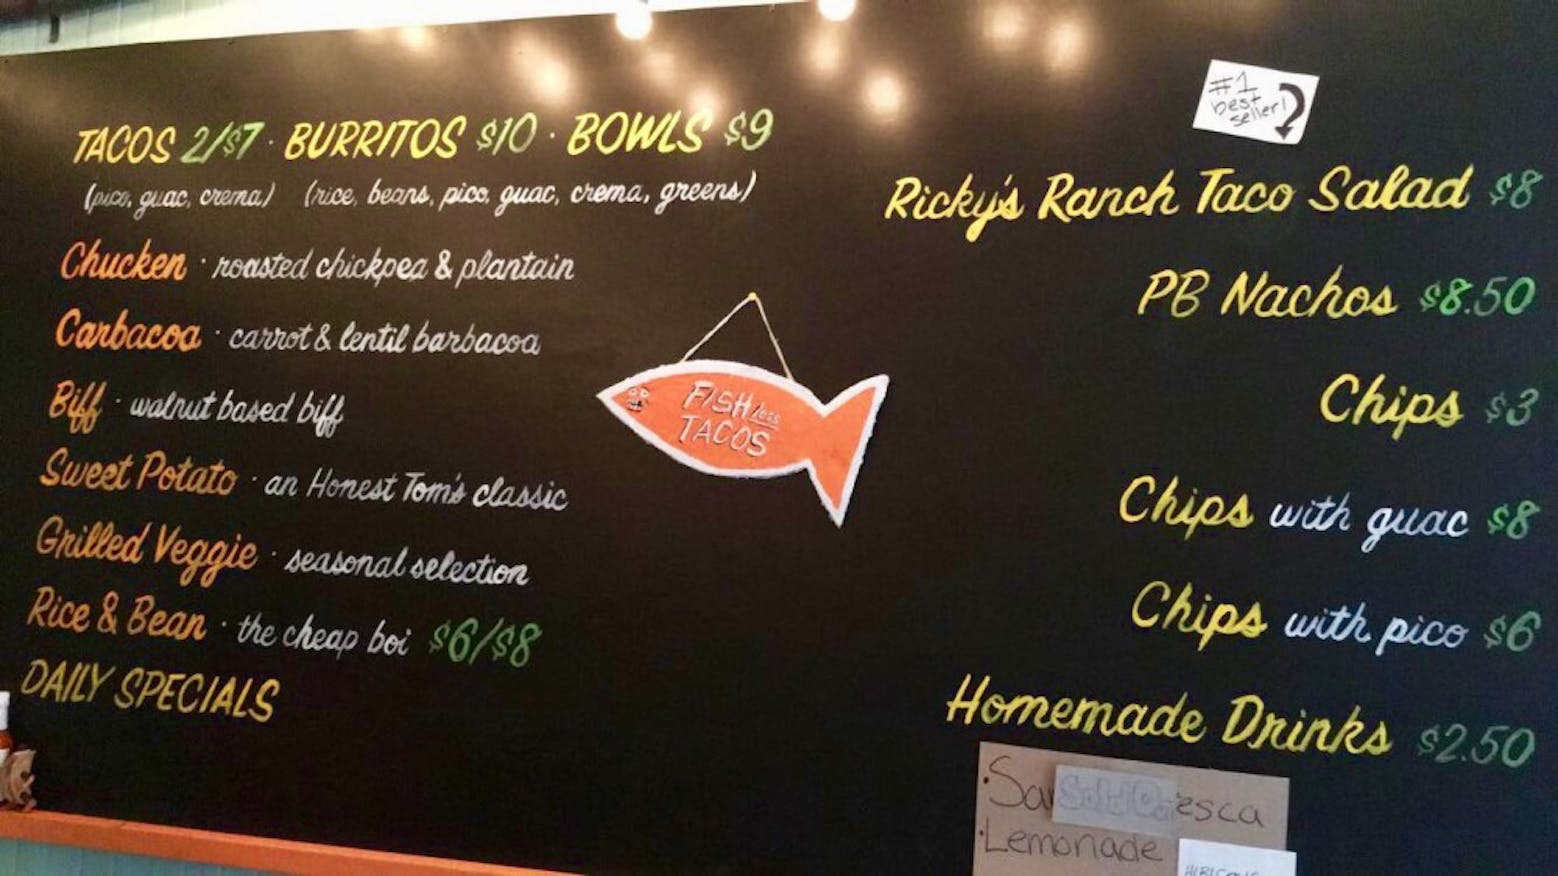 TACOS 2/$7 · BURRITOS $10 · BOWLS $9
(pico, guac, crema) (rice, beans, pico, guac, crema, greens)
Chucken · roasted chickpea & plantain
Carbacoa · carrot & lentil barbacoa
Biff · walnut based biff
Sweet Potato · an Honest Tom's classic
Grilled Veggie · seasonal selection
Rice & Bean · the cheap boi $6/$8
DAILY SPECIALS
FISH less
TACOS
#1
best
seller!
Ricky's Ranch Taco Salad $8
PB Nachos $8.50
Chips $3
Chips with guac $8
Chips with pico $6
Homemade Drinks $2.50
· Sold Out
· Lemonade